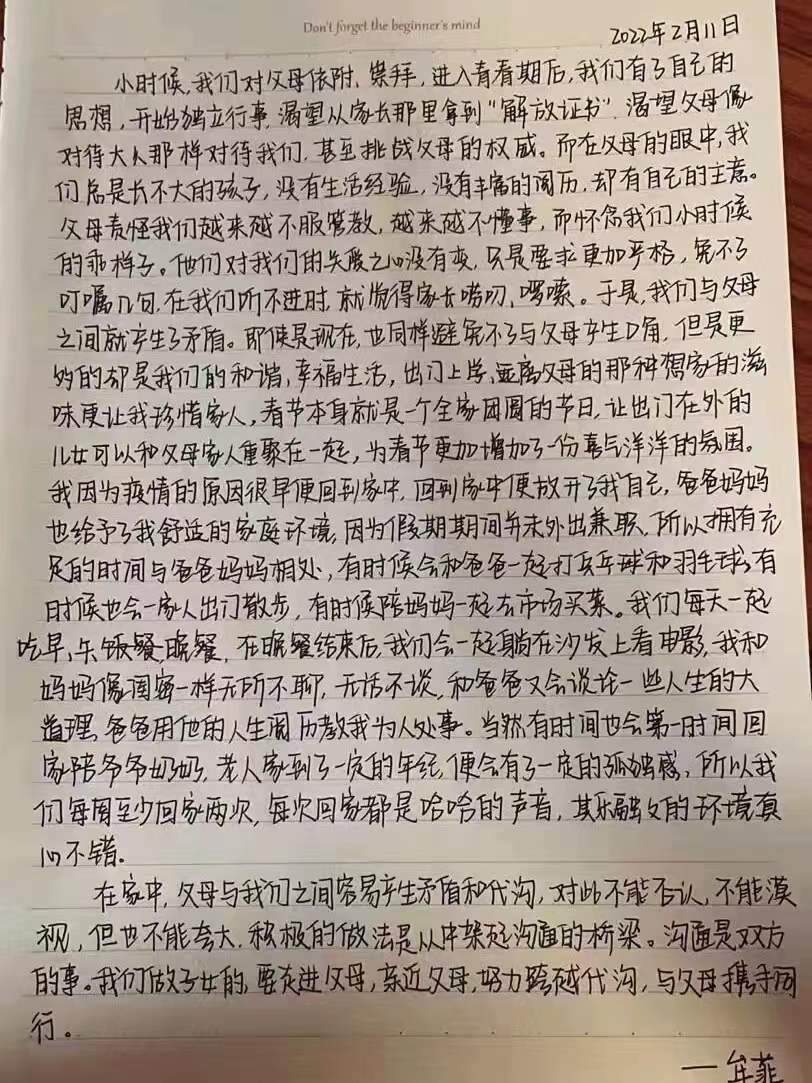 Don't forget the beginner's mind
2022年2月11日
小时候,我们对父母依附、崇拜,进入青春期后,我们有了自己的
思想,开始独立行事,渴望从家长那里拿到"解放证书",渴望父母像
对待大人那样对待我们,甚至挑战父母的权威。而在父母的眼中,我
们总是长不大的孩子,没有生活经验,没有丰富的阅历,却有自己的主意。
父母责怪我们越来越不服管教,越来越不懂事,而怀念我们小时候
的乖样子。他们对我们的关爱之心没有变,只是要求更加严格,免不了
叮嘱几句,在我们听不进时,就觉得家长唠叨、啰嗦。于是,我们与父母
之间就产生了矛盾。即使是现在,也同样避免不了与父母产生口角,但是更
多的却是我们的和谐,幸福生活,出门上学,远离父母的那种想家的滋
味更让我珍惜家人,春节本身就是一个全家团圆的节日,让出门在外的
儿女可以和父母家人重聚在一起,为春节更加增加了一份喜气洋洋的氛围。
我因为疫情的原因很早便回到家中,回到家中便放开了我自己,爸爸妈妈
也给予了我舒适的家庭环境,因为假期期间并未外出兼职,所以拥有充
足的时间与爸爸妈妈相处,有时候会和爸爸一起打乒乓球和羽毛球,有
时候也会一家人出门散步,有时候陪妈妈一起去市场买菜。我们每天一起
吃早、午饭餐,晚餐,在晚餐结束后,我们会一起躺在沙发上看电影,我和
妈妈像闺蜜一样无所不聊,无话不谈,和爸爸又会谈论一些人生的大
道理,爸爸用他的人生阅历教我为人处事。当然有时间也会第一时间回
家陪爷爷奶奶,老人家到了一定的年纪,便会有了一定的孤独感,所以我
们每周至少回家两次,每次回家都是哈哈的声音,其乐融融的环境真
心不错.
在家中,父母与我们之间容易产生矛盾和代沟,对此不能否认,不能漠
视,但也不能夸大,积极的做法是从中架起沟通的桥梁。沟通是双方
的事。我们做子女的,要走进父母,亲近父母,努力跨越代沟,与父母携手同
行。
——牟菲